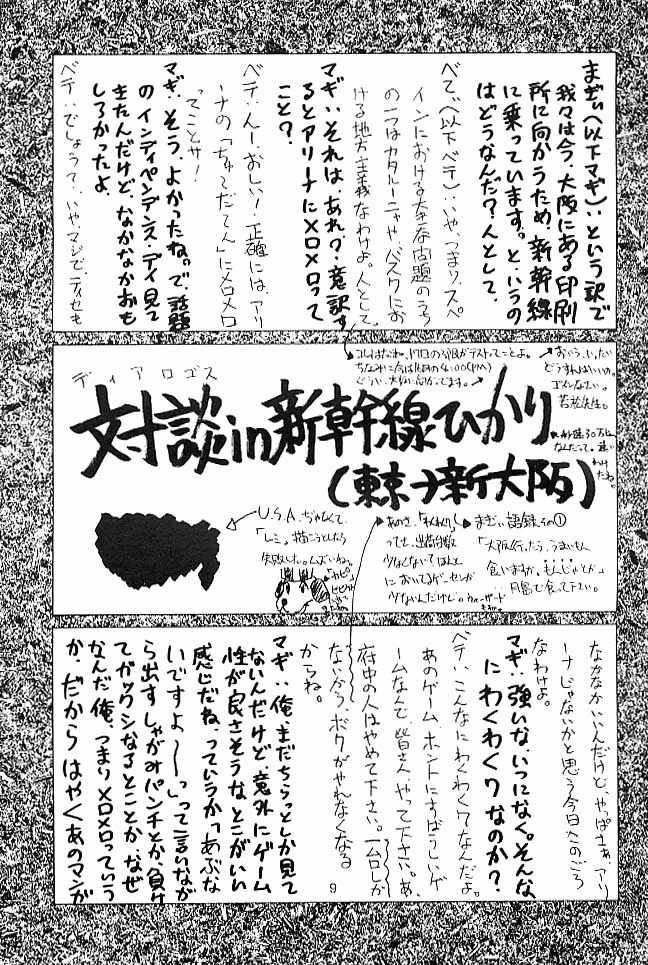 まぎぃ(以下マギ)：という訳で
我々は今、大阪にある印刷
所に向かうため、新幹線
に乗っています。と、いうの
はどうなんだ？人として。
べてぃ(以下ベテ)：いや、つまり、スペ
インにおける大きな問題のうち
の一つはカタルーニャや、バスクにお
ける地方主義なわけよ。人として。
マギ：それは、あれか？意訳す
るとアリーナにメロメロって
こと？
ベテ：んー、おしい！正確には、アリ
ーナの「ちゅ〜だてん」にメロメロ
ってことサ！
マギ：そう、よかったね。で、話題
のインディペンデンス・デイ見て
きたんだけど、なかなかおも
しろかったよ。
ベテ：でしょうて、いやマジで、ディセも
ディアロゴス
対談in新幹線ひかり
(東京→新大阪)
おいう、いったい
どうすんばいいの。
ゴメンなさい。
若松先生。
コレはなれ、17日の3限がテストってことよ。
ちなみに今は16日の4:00(PM)
どうい、大阪に向かってます。
U.S.A.ぢゃなくて、
「レミ」描こうとしたら
失敗した。ムズいねっ
あのさ、「わくわく7」
ってさ、出荷台数
少なくないではんと
においてるゲーセンが
少ないんだけど。
まぎぃ語録その①
「大阪行ったら、うまいもん
食いますか。もんじゃとか。」
月島で食って下さい。
なかなかいいんだけど、やっぱさぁ、アリ
ーナじゃないかと思う今日このごろ
なわけよ。
マギ：強いな、いつになく。そんな
にわくわく7なのか？
ベテ：こんなにわくわく7なんだよ。
あのゲームホントにすばらしいゲ
ームなんで、皆さん、やって下さい。あ、
府中の人はやめて下さい。一台しか
ないから、ボクがやれなくなる
からね。
マギ：俺、まだちらっとしか見て
ないんだけど、意外にゲーム
性が良さそうな、とこがいい
感じだね、っていうか「あぶな
いですよ〜〜」って言いなが
ら出すしゃがみパンチとか、負け
てガックシなるとことか、なぜ
なんだ俺、つまりメロメロっていう
か、だからはやくあのマンガ
9